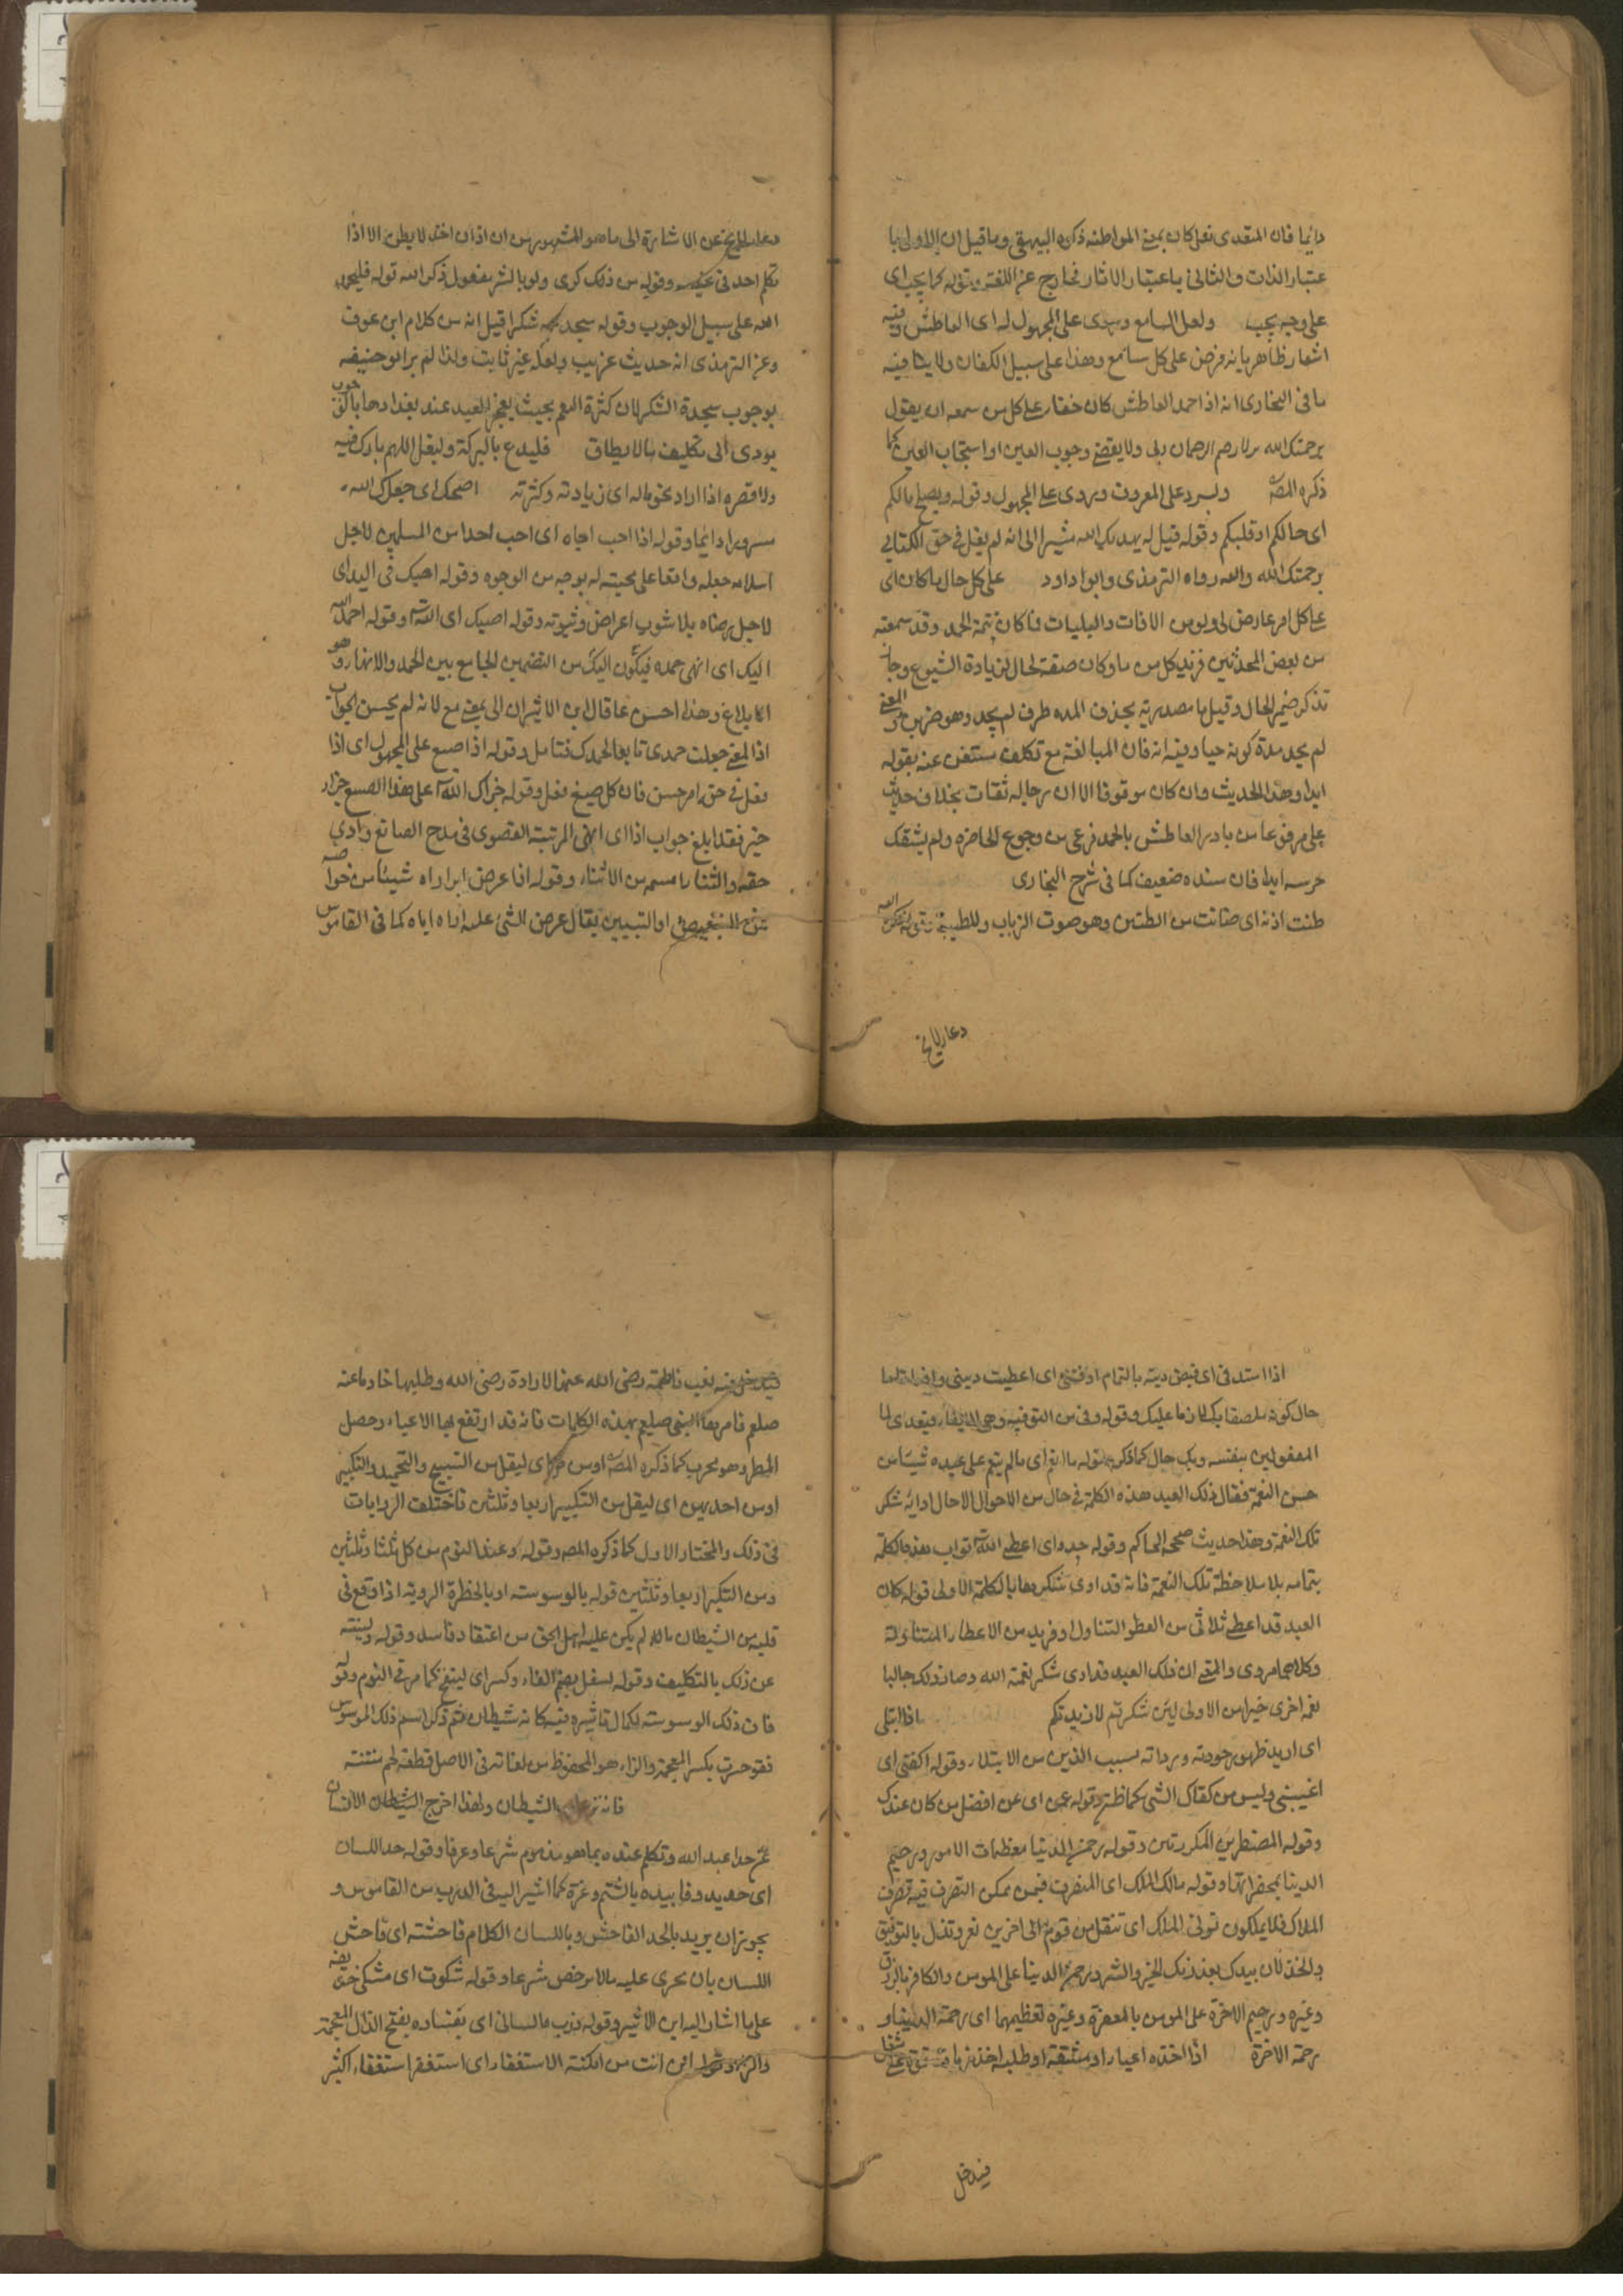 دائما فان المتعدى نعل كان بمعنى المواطنه ذكره البيهقى وما قيل ان الاولى با
عتبار الذات والثانى باعتبار الاثار نخارج عن اللغة وقوله كما يجب اى
على وجه يجب ولعل السامع وسرى على المجهول له اى العاطش وفيه
اشعار ظاهر بانه فرض على كل سامع وهذا على سبيل الكفان ولا ينافيه
ما فى البخارى انه اذا حمد العاطش كان حقا على كل من سمعه ان يقول
يرحمك الله ولا يقضى وجوب العين او استحباب العين كما
ذكره المص وليرد على المعروف ويروى على المجهول وقوله ويصلح بالكم
اى حالكم او قلبكم وقوله قيل له يهديك الله مشيرا الى انه لم يقل فى حق الكتابى
يرحمك الله والله رواه الترمذى وابوا داود على كل حال ما كان اى
على كل امر عارض لى ولو من الافات والبليات فا كان تتمة الحمد وقد سمعته
من بعض المحدثين فزيد كل من ما وكان صفة لحال لزيادة الشيوع وجاز
تذكر ضمير الحال وقيل ما مصدرية بحذف المده ظرف لم يجد وهو ضرس والمعنى
لم يجد مدة كونه حيا وفيه انه فان المبالغة مع تكلف مستغن عنه بقوله
ابدا وهذا الحديث وان كان موقوفا الا ان رجاله ثقات بخلاف حديث
على مرفوعا من بادر العاطش بالحمد فرعى من وجع الخاصره ولم يشتك
ضرسه ابدا فان سنده ضعيف كما فى شرح البخارى
طنت اذنه اى صانت من الطنين وهو صوت الذباب وللطيبة
دعا للايخ
دعا عن الاشارة الى ما هو المشهور من ان اذان احد لا يطن الا اذا
تكلم احد فى غيبته وقوله من ذلك كرى ولو بالشر مفعول ذكر الله قوله فليحمد
الله على سبيل الوجوب وقوله سجد شكرا قيل انه من كلام ابن عوف
وعن الترمذى انه حديث غريب ولعله غير ثابت ولذا لم ير ابو حنيفه
بوجوب سجدة الشكر لان كثرة النعم بحيث يعجز العبد عند بغدادها
يودى الى تكليف ما لا يطاق فليدع بالبركة وليقل اللهم بارك فيه
ولا تضره اذا اراد نحو ماله اى زيادته وكثرته اضحك اى جعلك الله
مسرورا دائما وقوله اذا احب اخاه اى احب احدا من المسلمين لاجل
اسلامه جعله واقعا على محبته له بوجه من الوجوه وقوله احبك فى الله اى
لاجل رضاه بلا شوب اعراض وثبوته وقوله احبك اى الله وقوله احمد الله
اليك اى انهى حمده فيكون اليك من التضمين الجامع بين الحمد والانهار وهو
الابلاغ وهذا احسن مما قال ابن الاثير ان الى بمعنى مع لانه لم يحسن الجواب
اذ المعنى جعلت حمدى تابعا لحمدك فتامل وقوله اذا صنع على المجهول اى اذا
فعل فى حق امر حسن فان كل صنع فعل وقوله جزاك الله على هذا الصنع جزاء
خير فقد ابلغ جواب اذا اى انهى المرتبة القصوى فى مدح الصانع وادى
حقه والثناء باسمه من الاثناء وقوله اذا عرض ابراراه شيئا من
من التخصيص او التبيين يقال عرض الشى عليه اراه اياه كما فى القاموس
اذا استدفى اى قبض ديته بالتمام اوفتنى اى اعطيت دينى
حال كونه ملصقا بك لازما عليك وقوله وفى من التوفيه وهى الايفاء ويتعدى الى
المفعولين بنفسه وبك حال كما ذكره قوله ما انعم اى ما لم ينعم على عبده شيئا من
حسن النعمة فقال ذلك العبد هذه الكلمة فى حال من الاحوال الا حال ادائه شكر
تلك النعمة وهذا حديث صححه الحاكم وقوله جدد اى اعطى الله ثواب هذه الكلمة
بتمامه بلا ملاحظة تلك النعمة فانه قد ادى شكرها بالكلمة الاولى قوله كان
العبد قد اعطى ثلاثى من العطو التناول او فريد من الاعطاء المتناولة
وكلاهما مروى والمعنى ان ذلك العبد قد ادى شكر نعمة الله وصار ذلك جالبا
نعمة اخرى خيرا من الاولى لئن شكرتم لازيدنكم اذا ابتلى
اى اريد ظهور جودته ورداته بسبب الدين من الابتلاء وقوله اكفنى اى
اغننى وليس من كفاك الشى كما ظن وقوله عمن اى عن افضل من كان عندك
وقوله المضطرين المكروبين وقوله رحمن الدنيا معظمات الامور ورحيم
الدنيا بمحقراتها وقوله مالك الملك اى المتصرف فيمن ممكن التصرف فيه تصرف
الملاك فلما يملكون تولى الملك اى تنقل من قوم الى اخرين تعز وتذل بالتوفيق
والخذلان بيدك بعذرتك الخير والشر ورحمن الدنيا على المومن والكافر بالرزق
وغيره ورحيم الاخرة على المومن بالمغفرة وغيره لعظيمهما اى رحمة الدنيا و
رحمة الاخرة اذا اخذه اعياء او مشقة او طلب اخذ
فيدخل
فيدخل فيه تعب فاطمة رضى الله عنها لارادة رضى الله وطلبها خادما عنه
صلعم فامرها النبى صلعم بهذه الكلمات فانه قد ارتفع بها الاعياء وحصل
المطر وهو مجرب كما ذكره المص اومن كل اى ليقل من التسبيح والتحميد والتكبير
اومن احديهن اى ليقل من التكبير اربعا وثلثين فاختلف الروايات
فى ذلك والمختار الاول كما ذكره المص وقوله وعند النوم من كل ثلثا وثلثين
ومن التكبر اربعا وثلثين قوله بالوسوسته او بالخطرة الردية اذا وقع فى
قلبه من الشيطان ما لم يكن عليه اهل الحق من اعتقاد فاسد وقوله ولينته
عن ذلك بالتكليف وقوله لسفل بضم الفاء وكسر اى لينفخ كما مر فى النوم وقوله
فان ذلك الوسوسته لكمال تاثيره فيه كانه شيطان ثم ذكر اسم ذلك الموسوس
فقو خنزب بكسر المعجمة والزاء هو المحفوظ من لغاته فى الاصل قطعة لحم منتنة
فانه الشيطان ولهذا اخرج الشيطان الانسان
عن حد عبد الله وتكلم عنده بما هو مذموم شرعا وعرفا وقوله حد اللسان
اى حديد وفا بيده بالشتم وغزة كما اشير اليه فى الدرب من القاموس و
يجوز ان يريد بالحد الفاحش وباللسان الكلام فاحشته اى فاحش
اللسان بان يجرى عليه ما لا يرخص شرعا وقوله شكوت اى مشكى
على ما اشار اليه ابن الاثير وقوله ذرب ما لسانى اى بفساده بفتح الذال المعجمة
والراء وقوله اين انت من امكنة الاستغفار اى استغفر استغفارا كثير